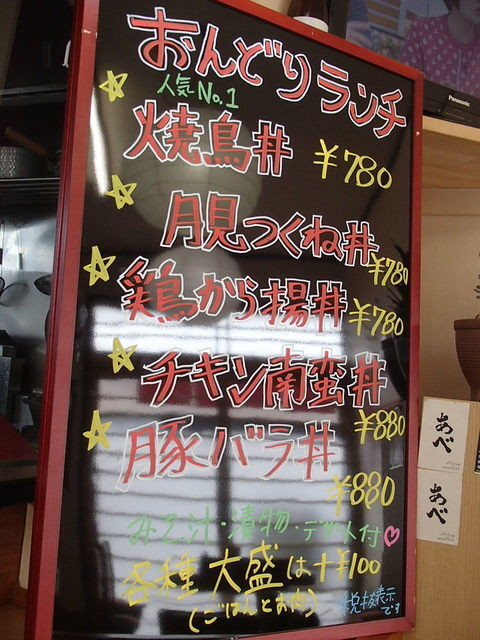 おんどりランチ
人気No.1
焼鳥丼 ¥780
月見つくね丼
¥780
鶏から揚丼 ¥780
チキン南蛮丼
¥880
豚バラ丼
¥880
みそ汁・漬物・デザート付♡
各種大盛は+¥100
(ごはんとお肉)
税抜表示
です
Panasonic
あべ
あべ